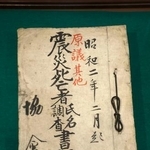 昭和二年二月起
原議其他
震災死亡者氏名調査書
協